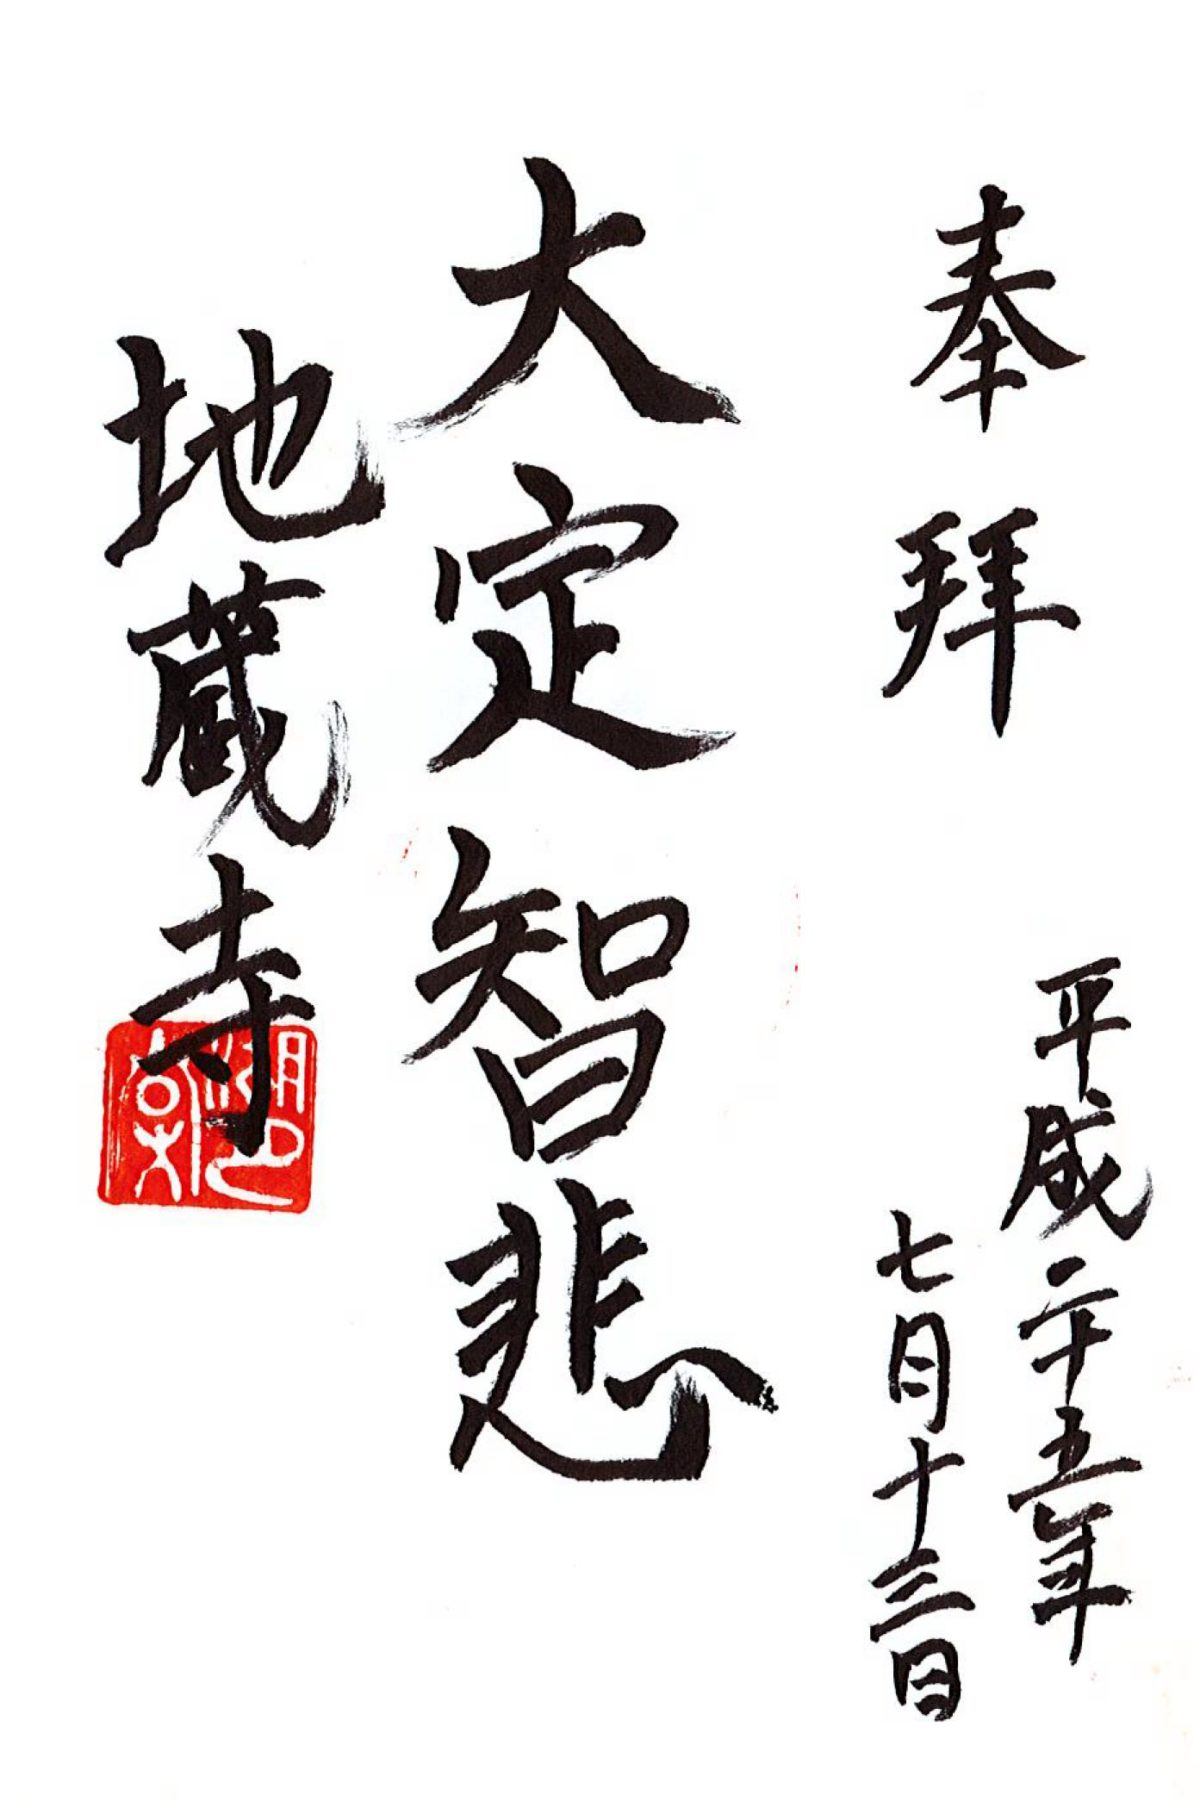 奉拜
平成二十五年
七月十三日
大定智悲
地蔵寺